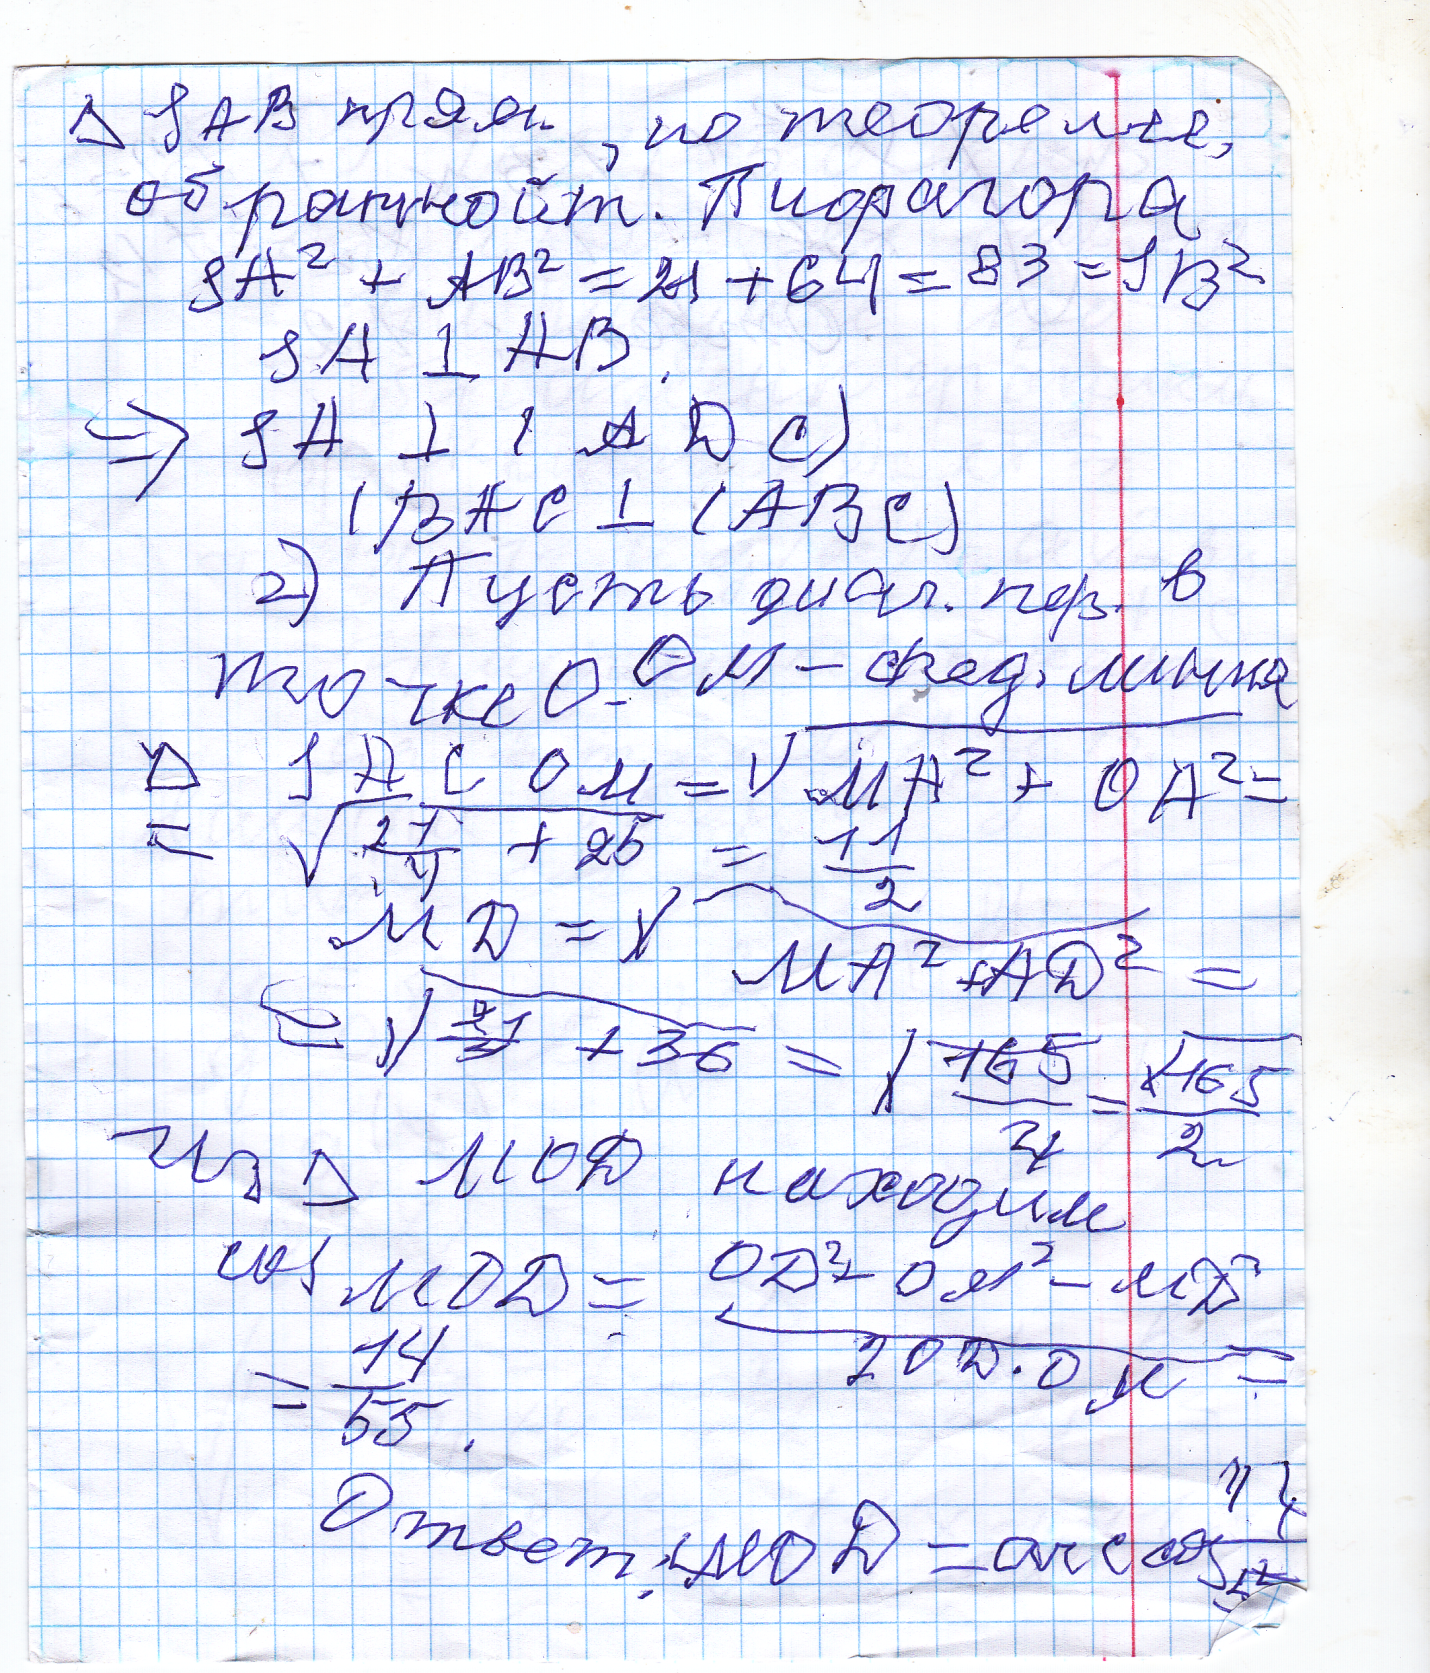 Δ SAB прям., по теореме,
обратной т. Пифагора
SA² + AB² = 21 + 64 = 83 = SB²
SA ⊥ AB.
⇒ SA ⊥ (ADC)
(BAC ⊥ (ABC)
2) Пусть диаг. пер. в
точке O. OM – сред. линия
Δ SAC OM = √MA² + OA² =
= √21/4 + 25 = 11/2
MD = √MA² + AD² =
= √21/4 + 36 = √165/4 = √165/2
Из Δ MOD находим
cos MOD = OD² + OM² – MD² / 2OD·OM =
= 14/55.
Ответ: ∠MOD = arccos 14